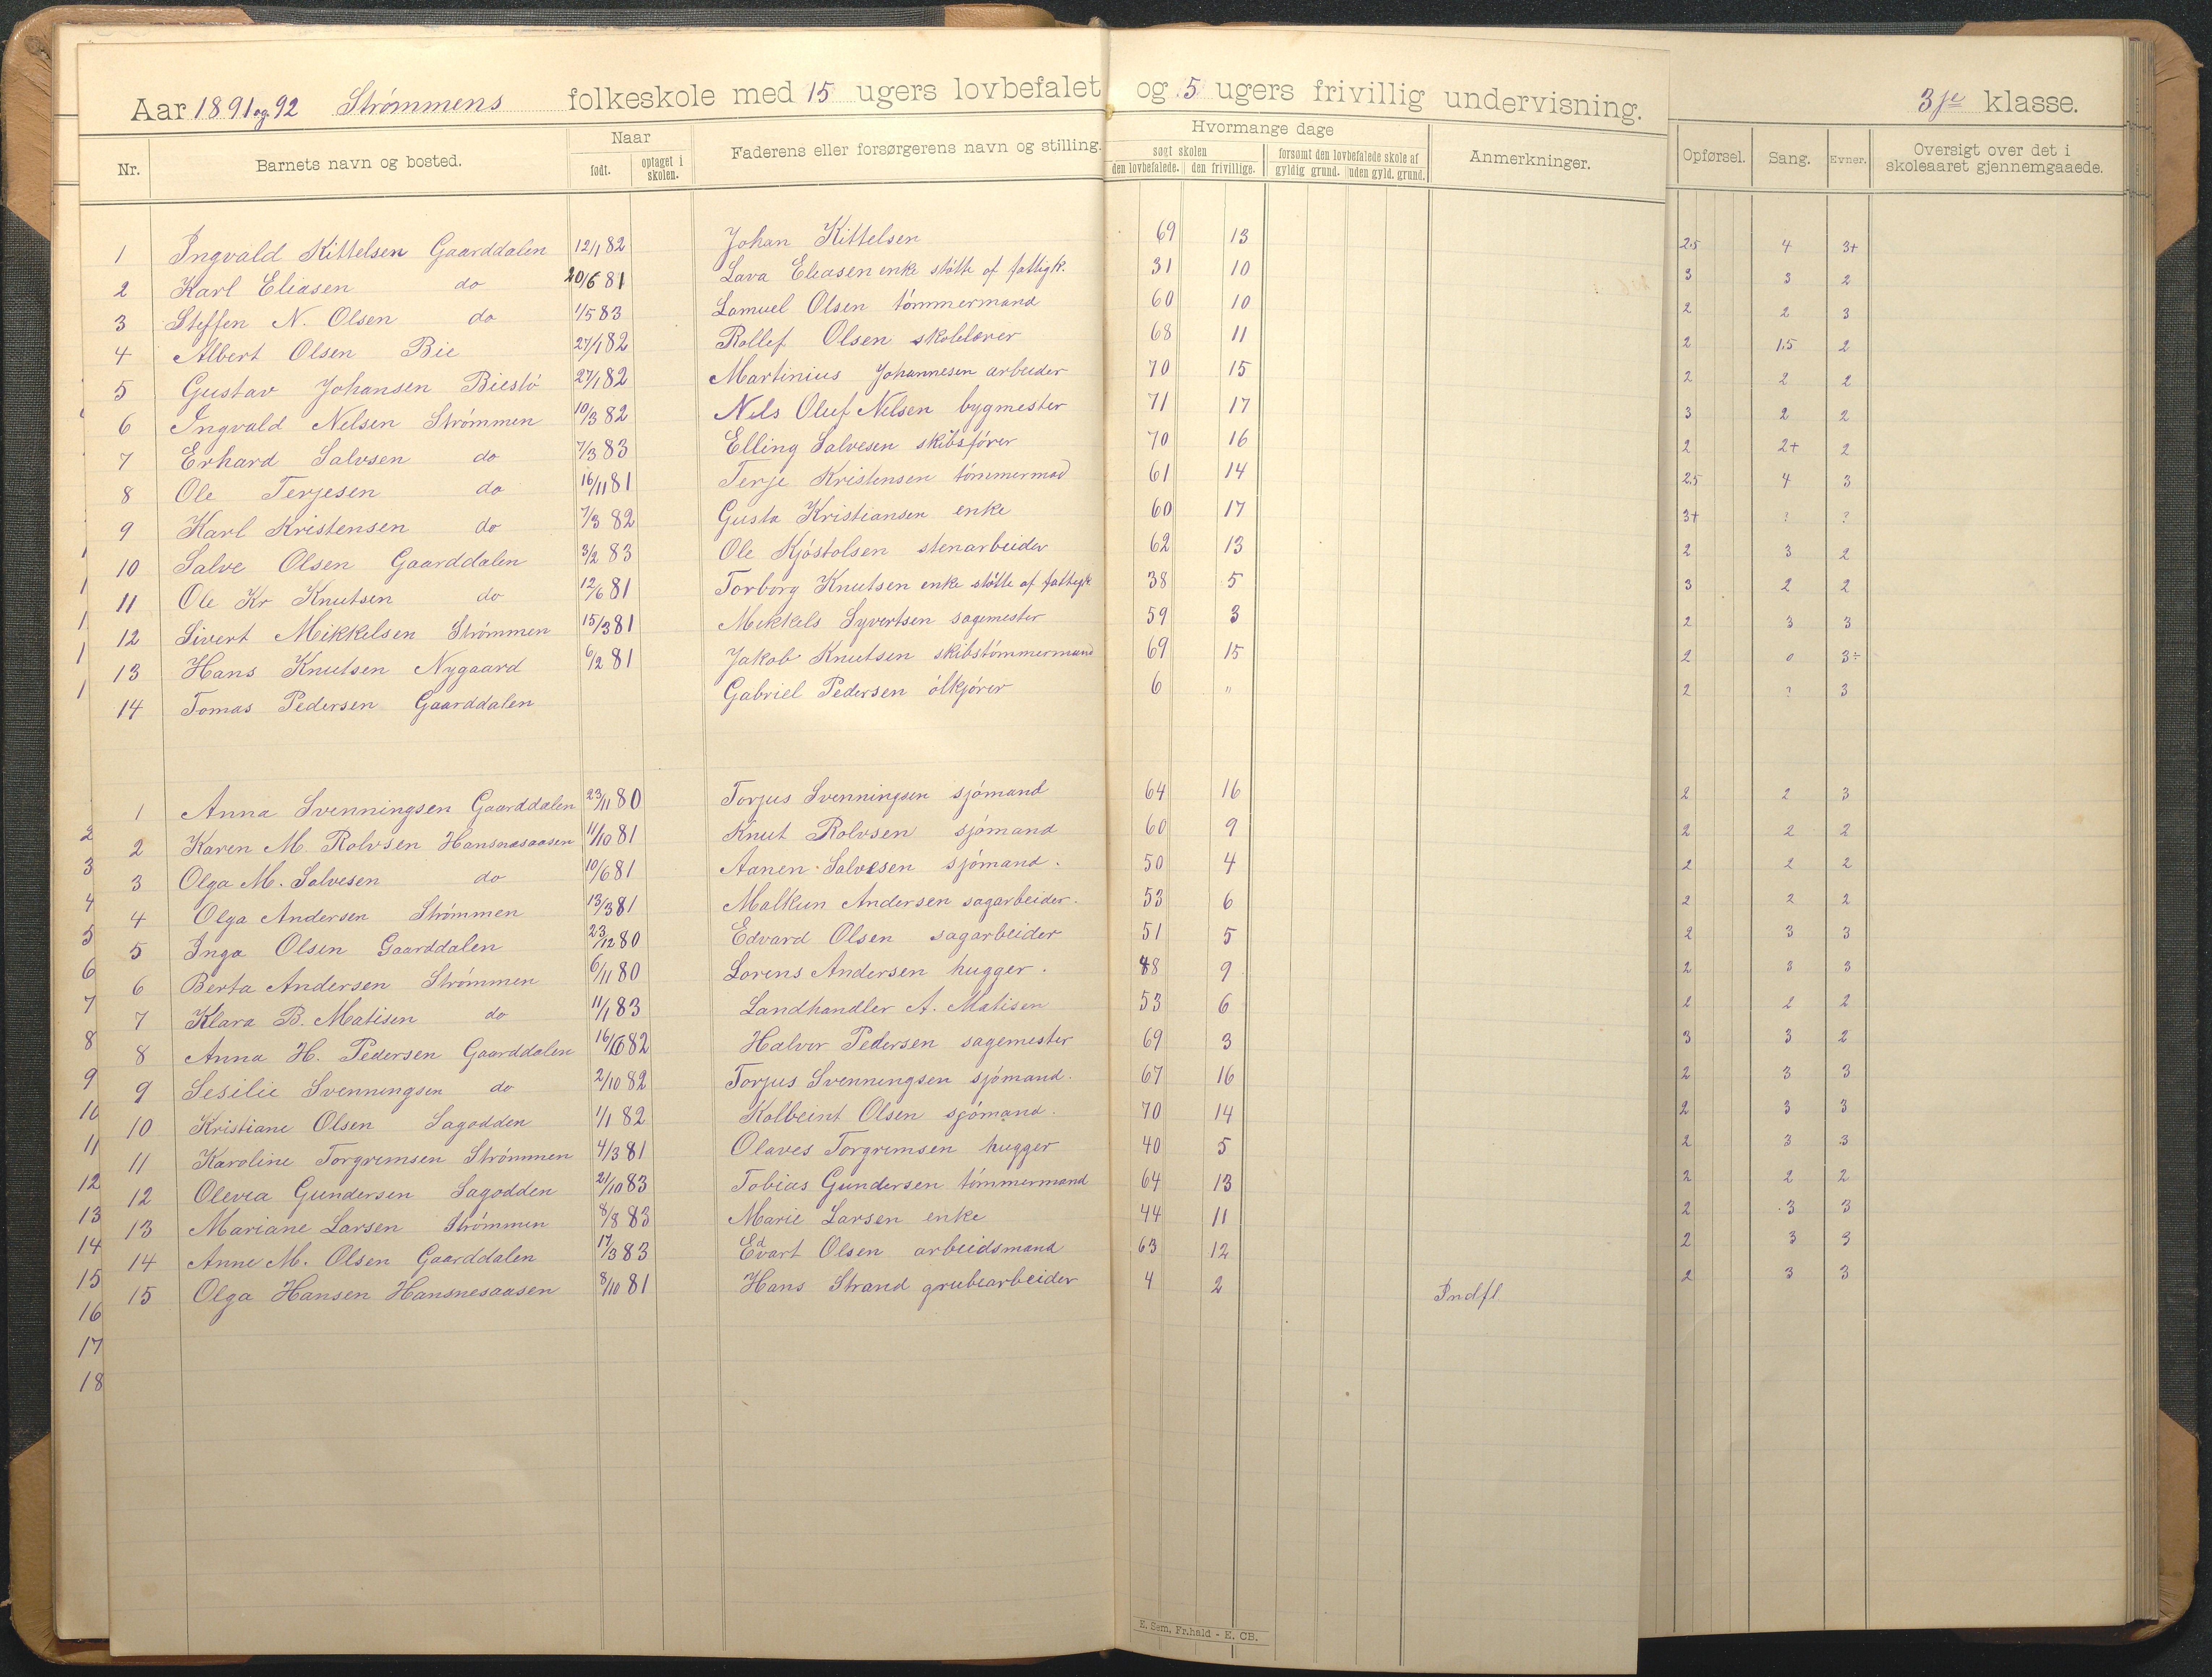 Aar 1891 og 92 Strømmens folkeskole med 15 ugers lovbefalet og 5 ugers frivillig undervisning. 3je klasse.
Nr. Barnets navn og bosted. Naar født. optaget i skolen. Faderens eller forsørgerens navn og stilling. Hvormange dage søgt skolen den lovbefalede. den frivillige. forsømt den lovbefalede skole af gyldig grund. uden gyld. grund. Anmerkninger. Opførsel. Sang. Evner. Oversigt over det i skoleaaret gjennemgaaede.
1 Ingvald Kittelsen Gaarddalen 12/1 82 Johan Kittelsen 69 13 2.5 4 3+
2 Karl Eliasen do 20/6 81 Lava Eliasen enke støtte af fattigk. 31 10 3 3 2
3 Steffen N. Olsen do 1/5 83 Samuel Olsen tømmermand 60 10 2 2 3
4 Albert Olsen Bie 27/1 82 Rollef Olsen skolelærer 68 11 2 1.5 2
5 Gustav Johansen Biestø 27/1 82 Martinius Johannesen arbeider 70 15 2 2 2
6 Ingvald Nelsen Strømmen 10/3 82 Nels Oluf Nelsen bygmester 71 17 3 2 2
7 Erhard Salvsen do 7/3 83 Elling Salvesen skibsfører 70 16 2 2+ 2
8 Ole Terjesen do 16/11 81 Terje Kristensen tømmermad 61 14 2.5 4 3
9 Karl Kristensen do 7/3 82 Gusta Kristiansen enke 60 17 3+ ? ?
10 Salve Olsen Gaarddalen 3/2 83 Ole Kjøstolsen stenarbeider 62 13 2 3 2
11 Ole Kr Knutsen do 12/6 81 Torborg Knutsen enke støtte af fattigk 38 5 3 2 2
12 Sivert Mikkelsen Strømmen 15/3 81 Mekkels Syvertsen sagemester 59 3 2 3 3
13 Hans Knutsen Nygaard 6/2 81 Jakob Knutsen skibstømmermand 69 15 2 0 3÷
14 Tomas Pedersen Gaarddalen Gabriel Pedersen ølkjører 6 " 2 ? 3
1 Anna Svenningsen Gaarddalen 23/11 80 Torjus Svenningsen sjømand 64 16 2 2 3
2 Karen M. Rolvsen Hansnæsaasen 11/10 81 Knut Rolvsen sjømand 60 9 2 2 2
3 Olga M. Salvesen do 10/6 81 Aanen Salvesen sjømand. 50 4 2 2 2
4 Olga Andersen Strømmen 13/3 81 Malkun Andersen sagarbeider. 53 6 2 2 2
5 Inga Olsen Gaarddalen 23/12 80 Edvard Olsen sagarbeider 51 5 2 3 3
6 Berta Andersen Strømmen 6/11 80 Lorens Andersen hugger. 48 9 2 3 3
7 Klara B. Matisen do 11/1 83 Landhandler A. Matisen 53 6 2 2 2
8 Anna H. Pedersen Gaarddalen 16/6 82 Halvor Pedersen sagemester 69 3 3 3 2
9 Sesilie Svenningsen do 2/10 82 Torjus Svenningsen sjømand. 67 16 2 3 3
10 Kristiane Olsen Sagodden 1/1 82 Kolbeint Olsen sjømand. 70 14 2 3 3
11 Karoline Torgrimsen Strømmen 4/3 81 Olaves Torgrimsen hugger 40 5 2 3 3
12 Olevea Gundersen Sagodden 21/10 83 Tobias Gundersen tømmermand 64 13 2 2 2
13 Mariane Larsen Strømmen 8/8 83 Marie Larsen enke 44 11 2 3 3
14 Anne M. Olsen Gaarddalen 17/3 83 Edvart Olsen arbeidsmand 63 12 2 3 3
15 Olga Hansen Hansnesaasen 8/10 81 Hans Strand grubearbeider 4 2 Indfl 2 3 3
2
3
4
5
6
7
8
9
10
11
12
13
14
15
16
17
18
E. Sem, Fr.hald - E. CB.